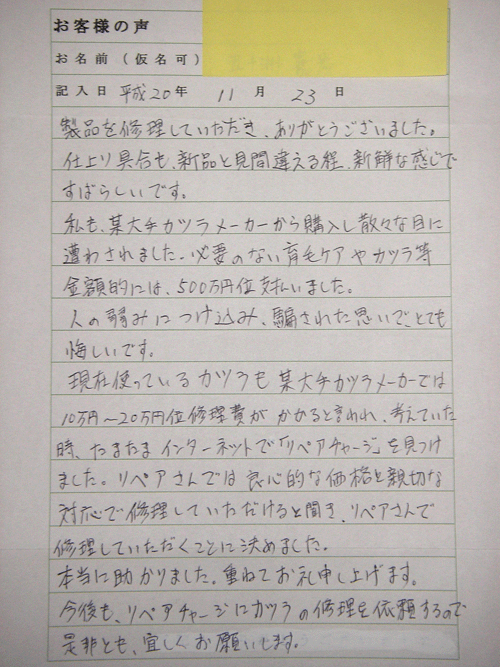 お客様の声
お名前（仮名可）
記入日 平成20年 11月 23日
製品を修理していただき、ありがとうございました。
仕上り具合も、新品と見間違える程、新鮮な感じで
すばらしいです。
私も、某大手カツラメーカーから購入し散々な目に
遭わされました。必要のない育毛ケアやカツラ等
金額的には、500万円位支払いました。
人の弱みにつけ込み、騙された思いでとても
悔しいです。
現在使っているカツラも某大手カツラメーカーでは
10万円〜20万円位修理費がかかると言われ、考えていた
時、たまたまインターネットで「リペアチャージ」を見つけ
ました。リペアさんでは良心的な価格と親切な
対応で修理していただけると聞き、リペアさんで
修理していただくことに決めました。
本当に助かりました。重ねてお礼申し上げます。
今後も、リペアチャージにカツラの修理を依頼するので
是非とも、宜しくお願いします。